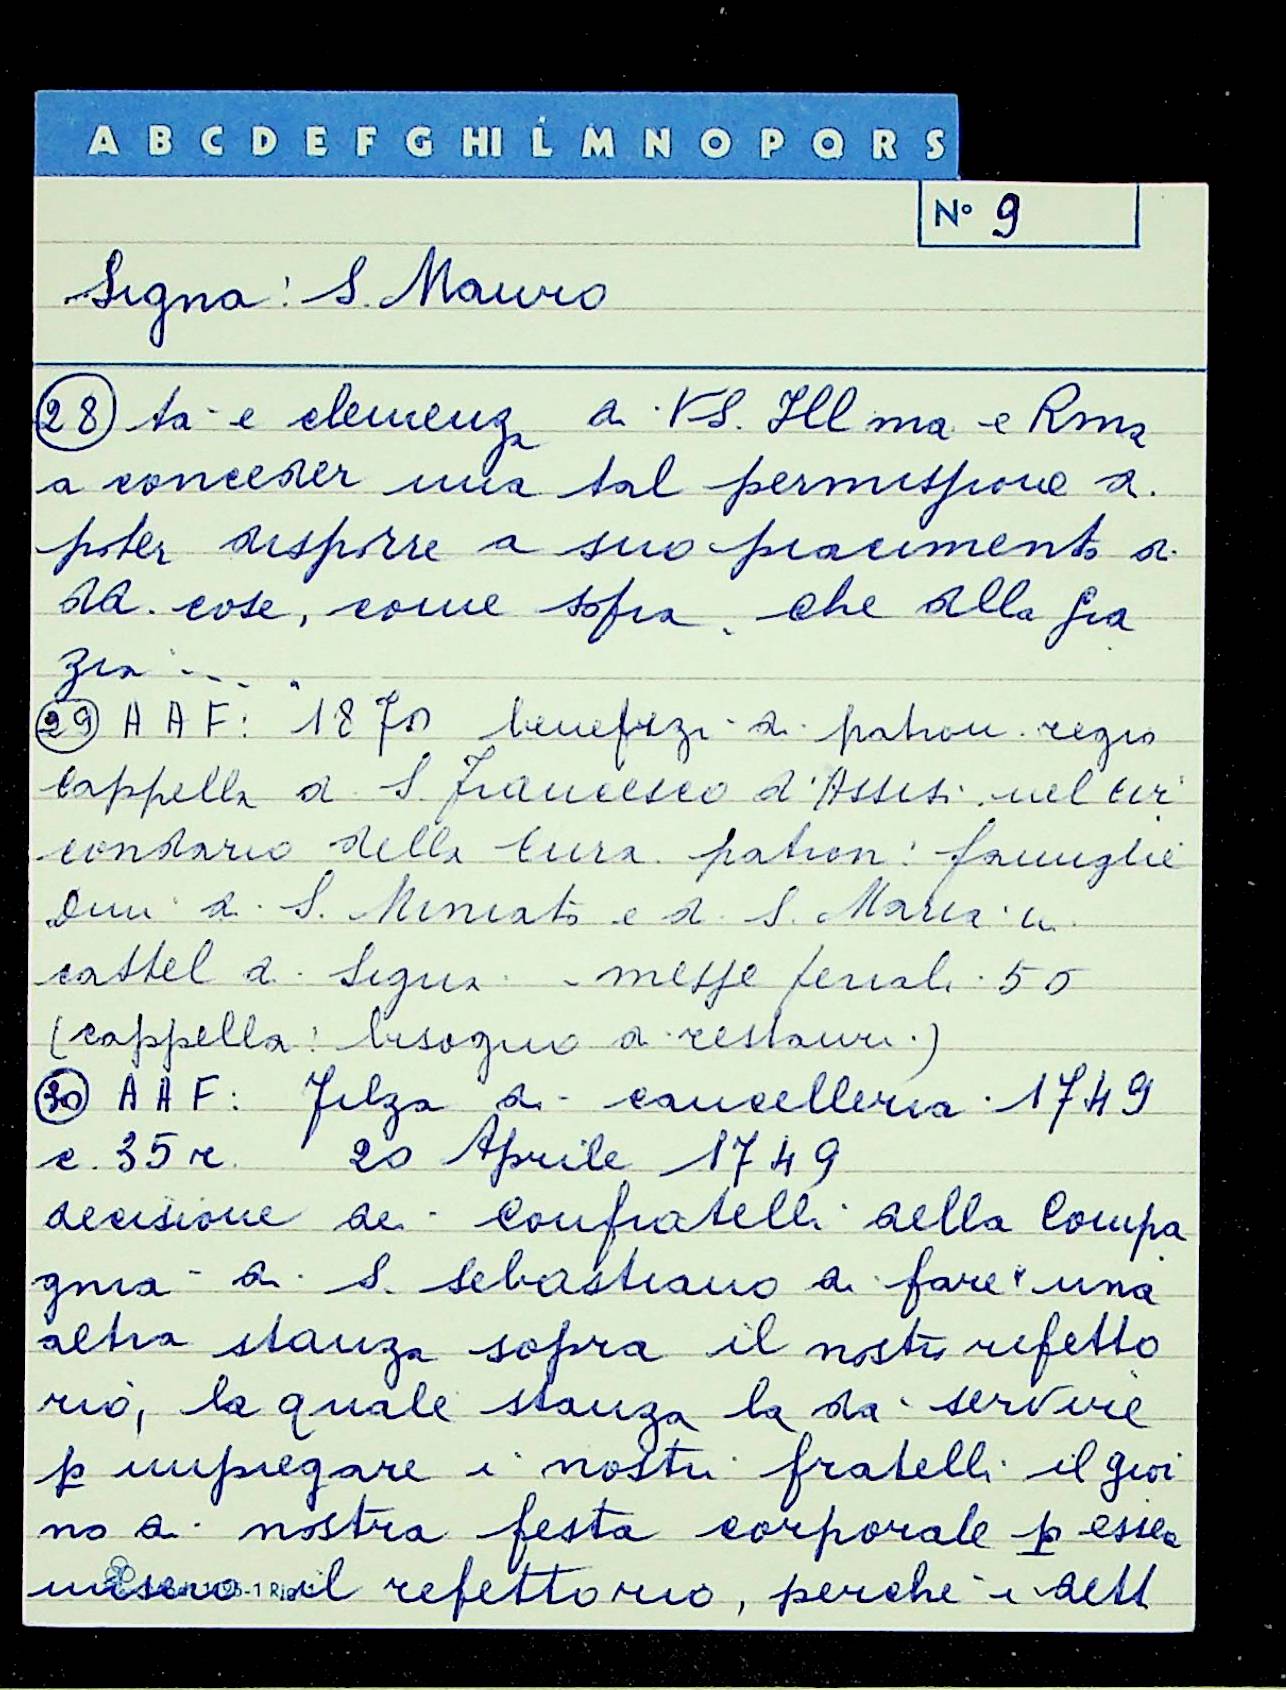 A B C D E F G HI L M N O P Q R S
N° 9
Signa: S. Mauro
(28) tà e clemenza di VS. Illma e Rma
a conceder una tal permissione di
poter disporre a suo piacimento di
dd. cose, come sopra, che della gra
zia ....
(29) AAF: 1870 benefizi di patron. regio
Cappella di S. Francesco d'Assisi nel cir
condario della Cura. patron: famiglie
di S. Miniato e di S. Maria in
castel di Signa - messe feriali 50
(cappella: bisogno di restauri)
(30) AAF: Filza di cancelleria 1749
c. 35r. 20 Aprile 1749
decisione dei Confratelli della Compa
gnia di S. Sebastiano di fare una
altra stanza sopra il nostro refetto
rio, la quale stanza la da servire
p impiegare i nostri fratelli il gior
no di nostra festa corporale p esser
misero il refettorio, perché i dett